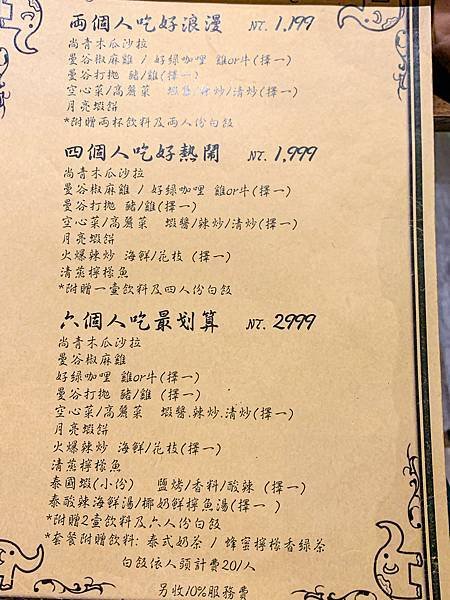 兩個人吃好浪漫 NT. 1,199
尚青木瓜沙拉
曼谷椒麻雞 / 好綠咖哩 雞or牛(擇一)
曼谷打拋 豬/雞(擇一)
空心菜/高麗菜 蝦醬/辣炒/清炒(擇一)
月亮蝦餅
*附贈兩杯飲料及兩人份白飯
四個人吃好熱鬧 NT. 1,999
尚青木瓜沙拉
曼谷椒麻雞 / 好綠咖哩 雞or牛(擇一)
曼谷打拋 豬/雞(擇一)
空心菜/高麗菜 蝦醬/辣炒/清炒(擇一)
月亮蝦餅
火爆辣炒 海鮮/花枝 (擇一)
清蒸檸檬魚
*附贈一壺飲料及四人份白飯
六個人吃最划算 NT. 2999
尚青木瓜沙拉
曼谷椒麻雞
好綠咖哩 雞or牛(擇一)
曼谷打拋 豬/雞 (擇一)
空心菜/高麗菜 蝦醬.辣炒.清炒(擇一)
月亮蝦餅
火爆辣炒 海鮮/花枝(擇一)
清蒸檸檬魚
泰國蝦(小份) 鹽烤/香料/酸辣 (擇一)
泰酸辣海鮮湯/椰奶鮮檸魚湯(擇一 )
*附贈2壺飲料及六人份白飯
*套餐附贈飲料: 泰式奶茶 / 蜂蜜檸檬香綠茶
白飯依人頭計費20/人
另收10%服務費